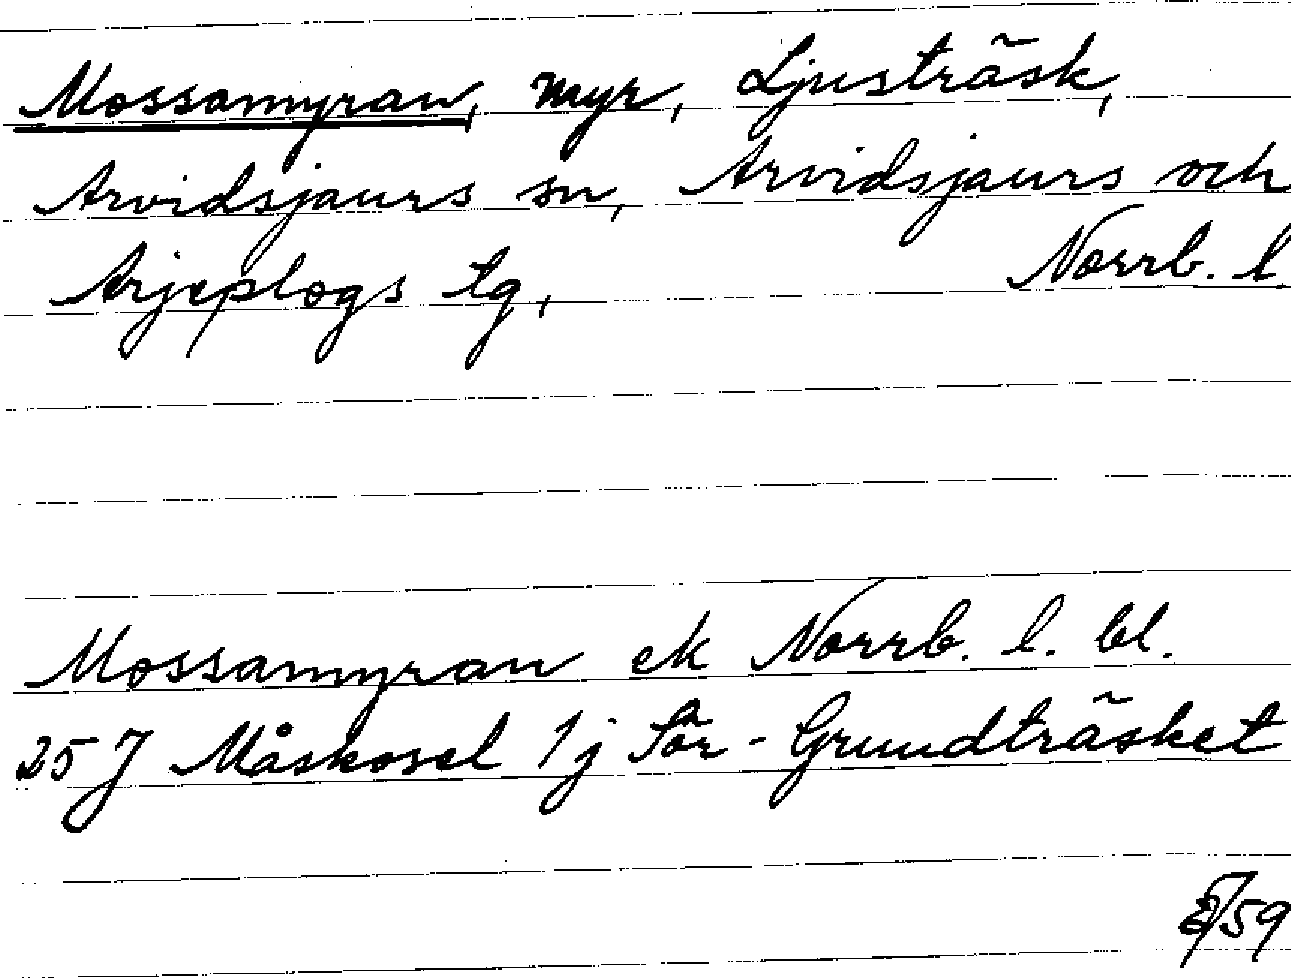 Mossamyran, myr, Ljusträsk,
Arvidsjaurs sn, Arvidsjaurs och
Arjeplogs tg, Norrb. l.
Mossamyran ek Norrb. l. bl.
25 J Måskosel 1j Sör-Grundträsket
59